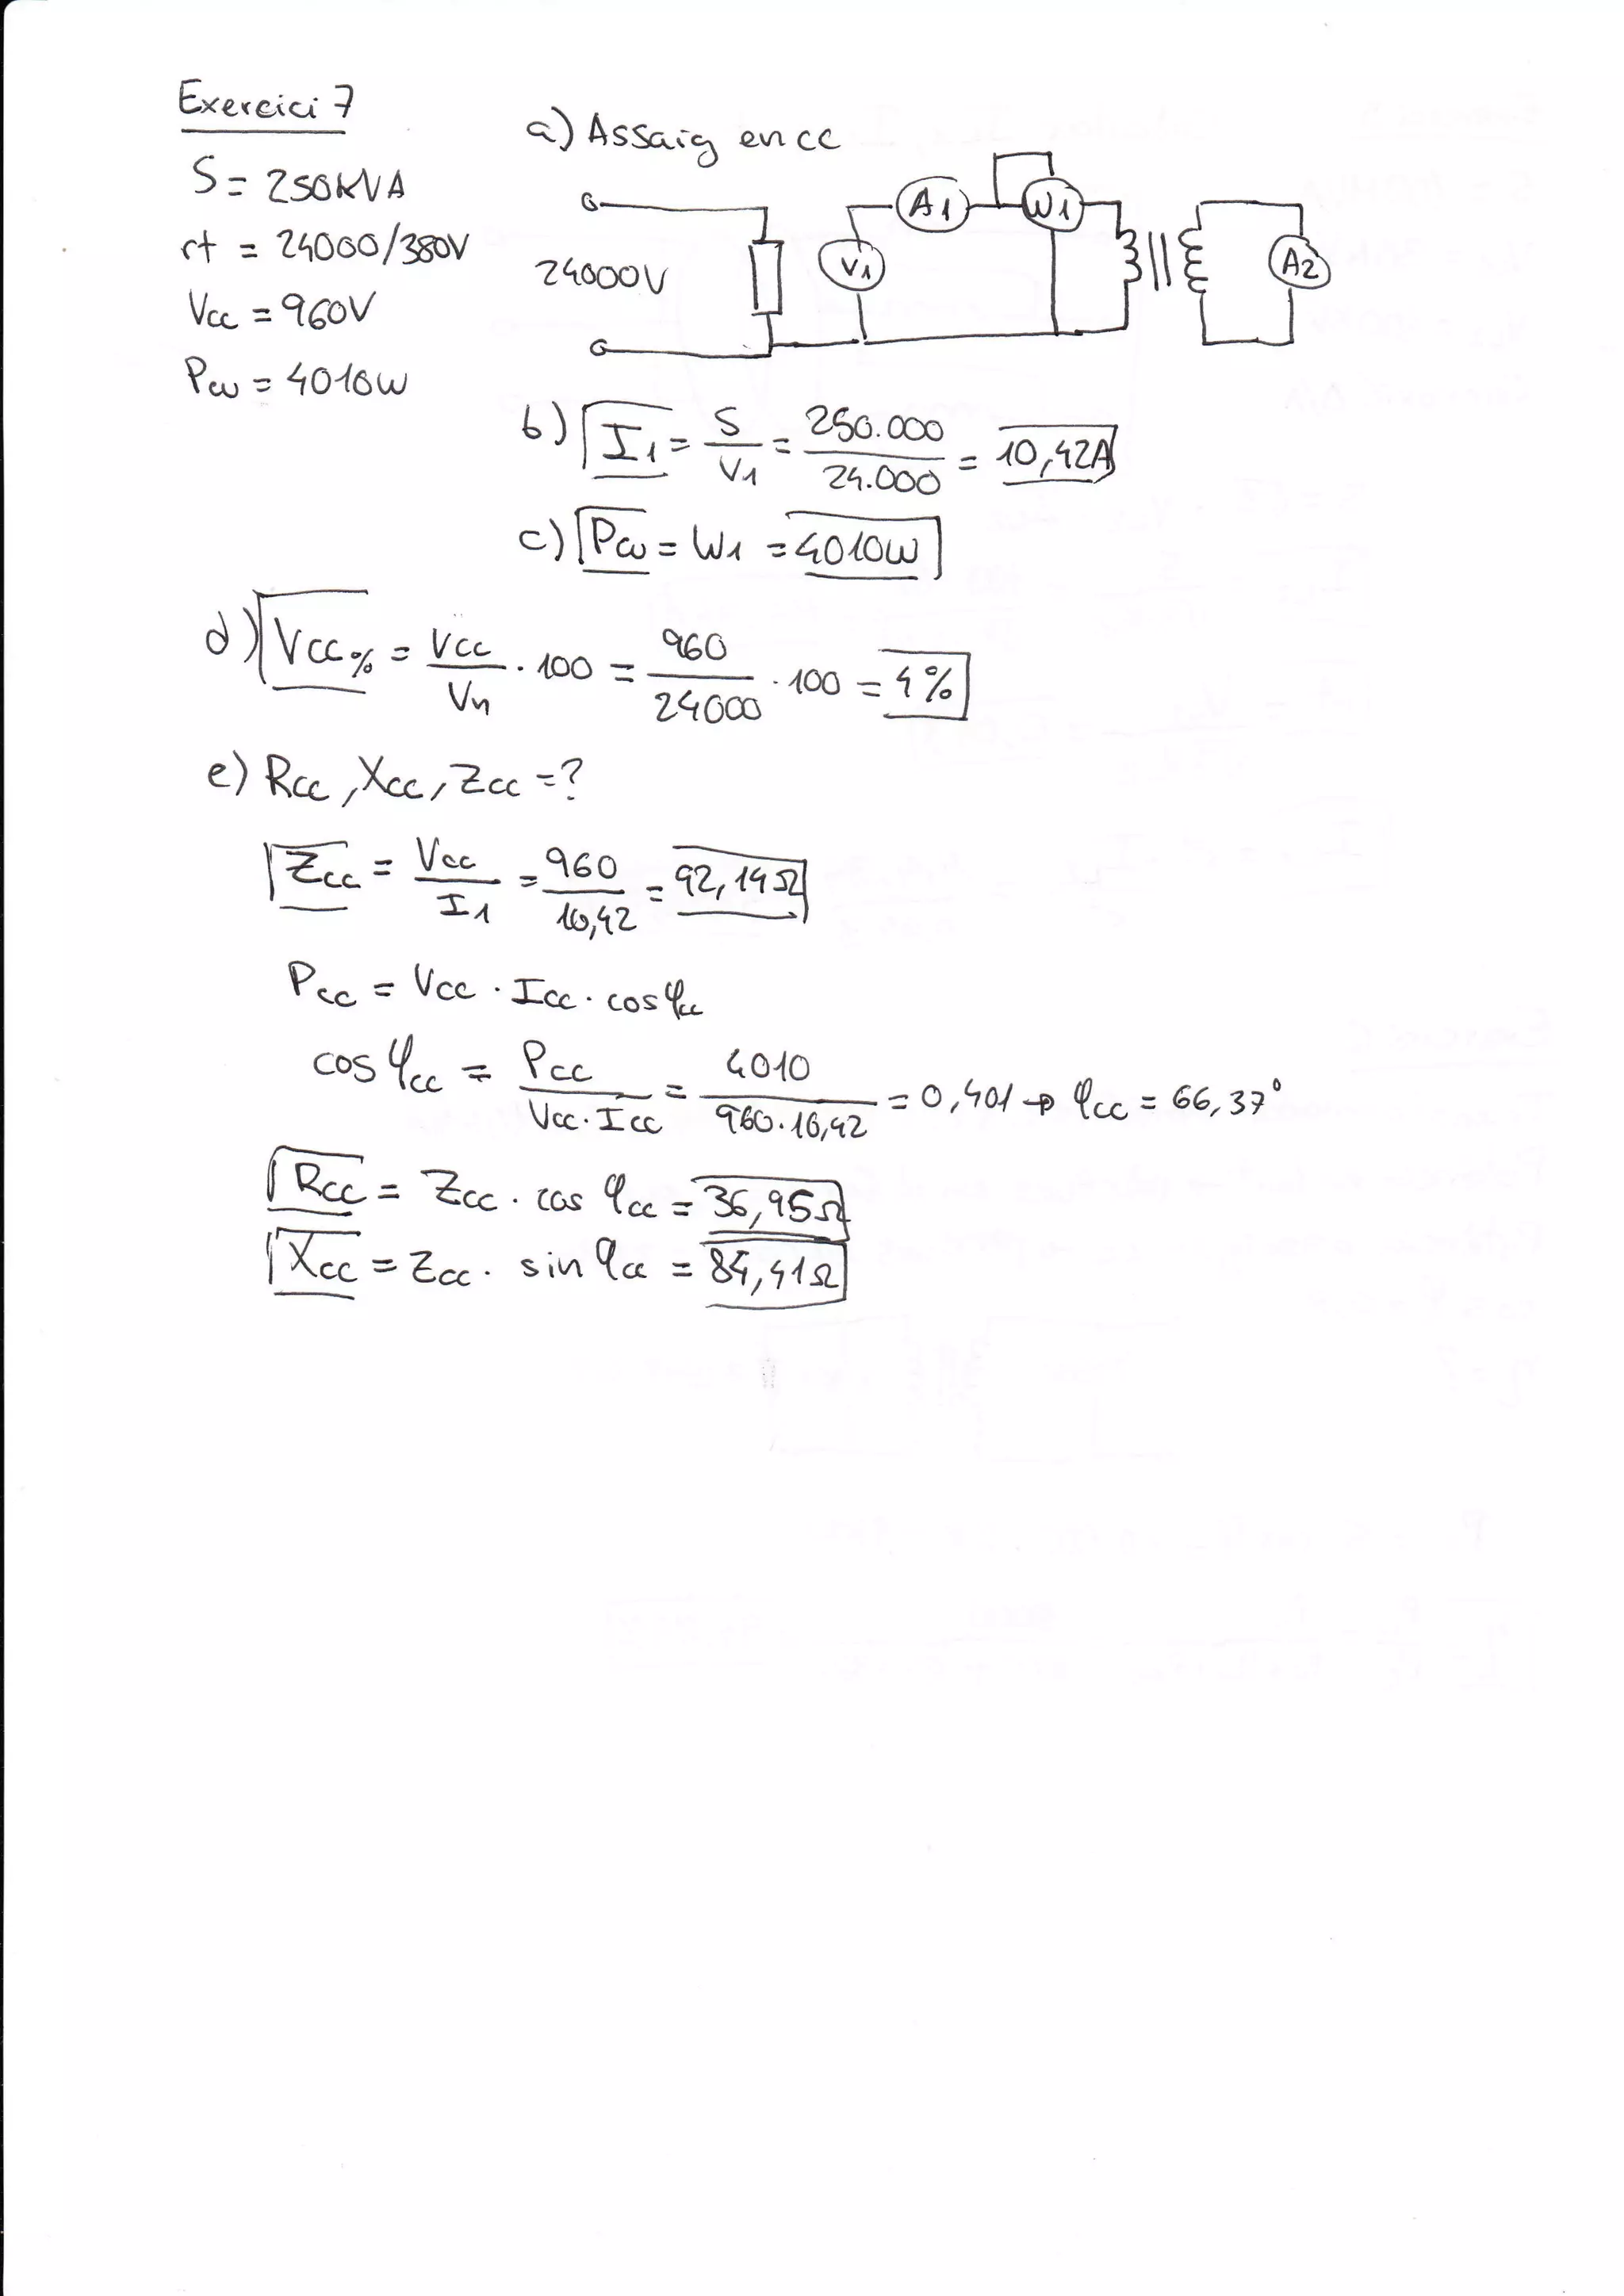 Exercici 7
S = 250KVA
rt = 24000/380V
Vcc = 960V
Pcu = 4010W
a) Assaig en cc
24000V
V1
A1
W1
A2
b) I1 = S/V1 = 250.000/24.000 = 10,42A
c) Pcu = W1 = 4010W
d) Vcc% = Vcc/Vn · 100 = 960/24000 · 100 = 4%
e) Rcc, Xcc, Zcc = ?
Zcc = Vcc/I1 = 960/10,42 = 92,14Ω
Pcc = Vcc · Icc · cos φcc
cos φcc = Pcc/Vcc·Icc = 4010/960·10,42 = 0,401 → φcc = 66,37°
Rcc = Zcc · cos φcc = 36,95Ω
Xcc = Zcc · sin φcc = 84,41Ω